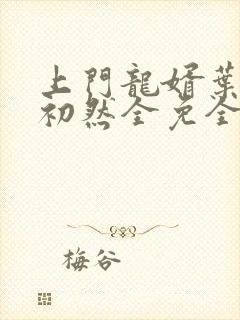 上門龍婿葉
初然全免全
梅谷